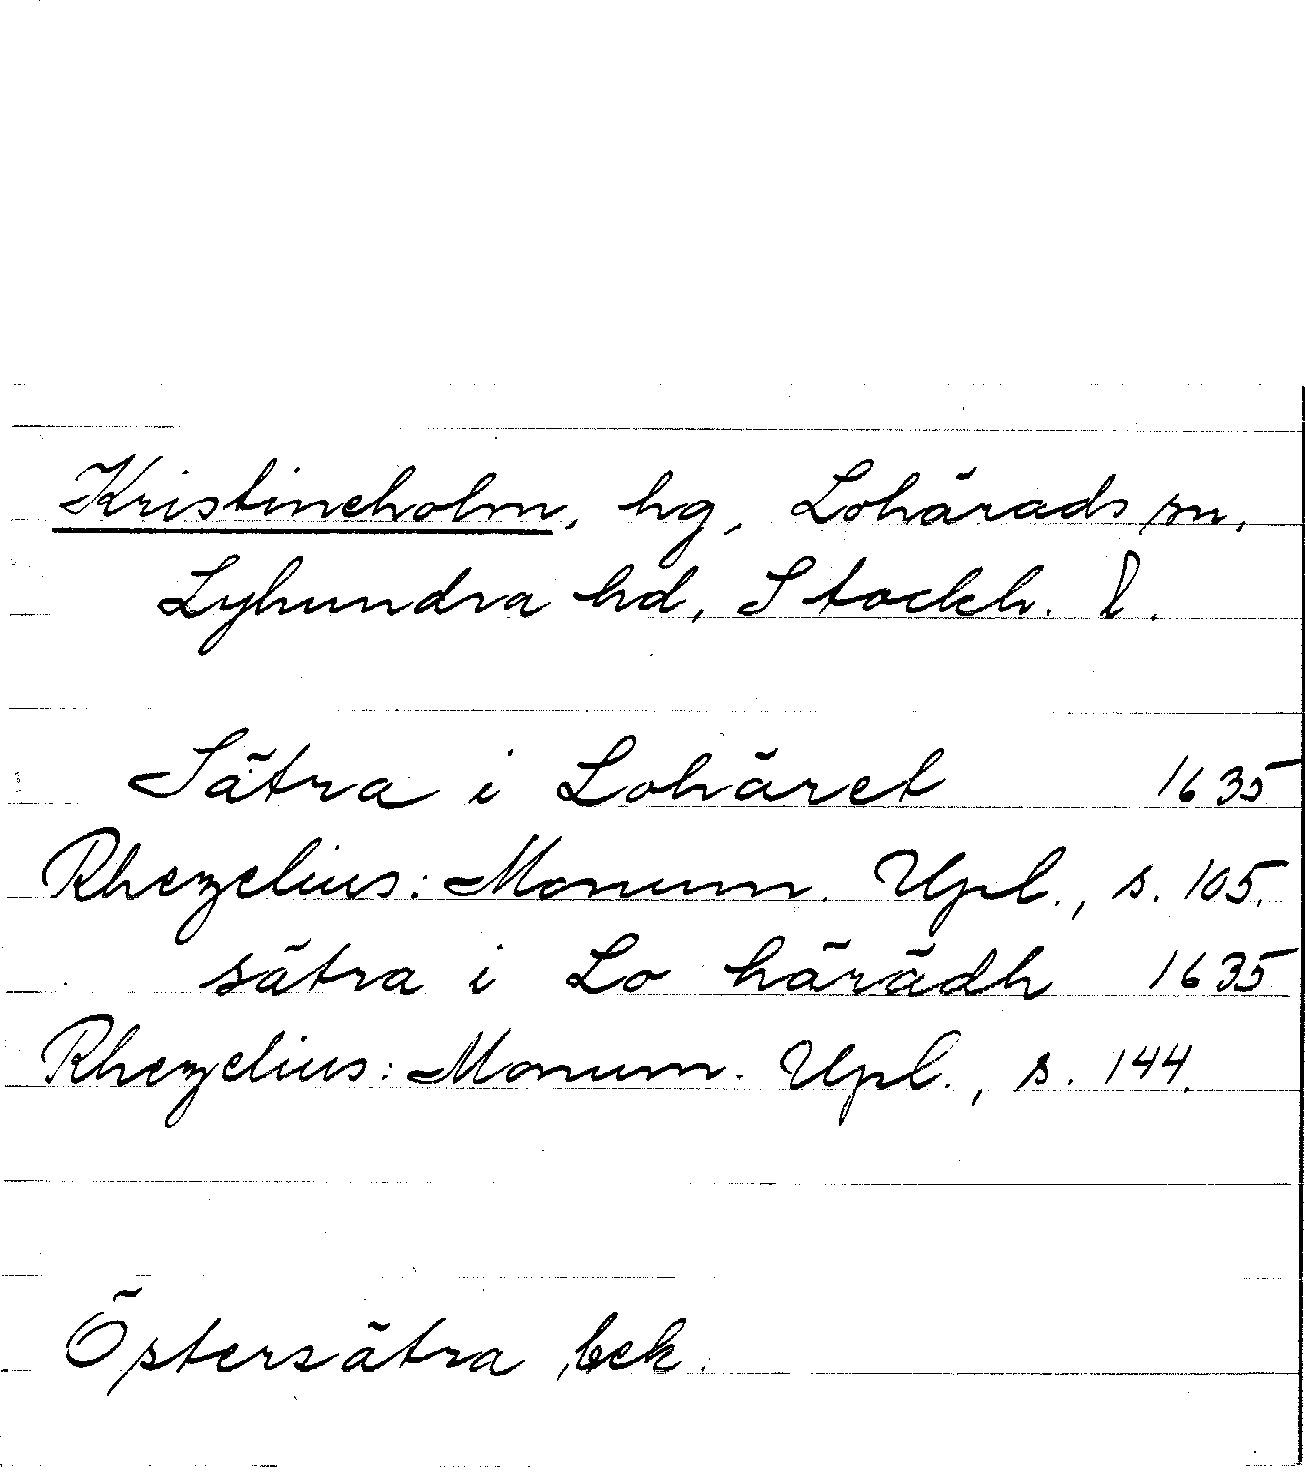 Kristineholm, hg, Lohärads sn,
Lyhundra hd, Stockh. l.
Sätra i Lohäret 1635
Rhezelius: Monum. Upl., s. 105.
sätra i Lo härädh 1635
Rhezelius: Monum. Upl., s. 144.
Östersätra bek.